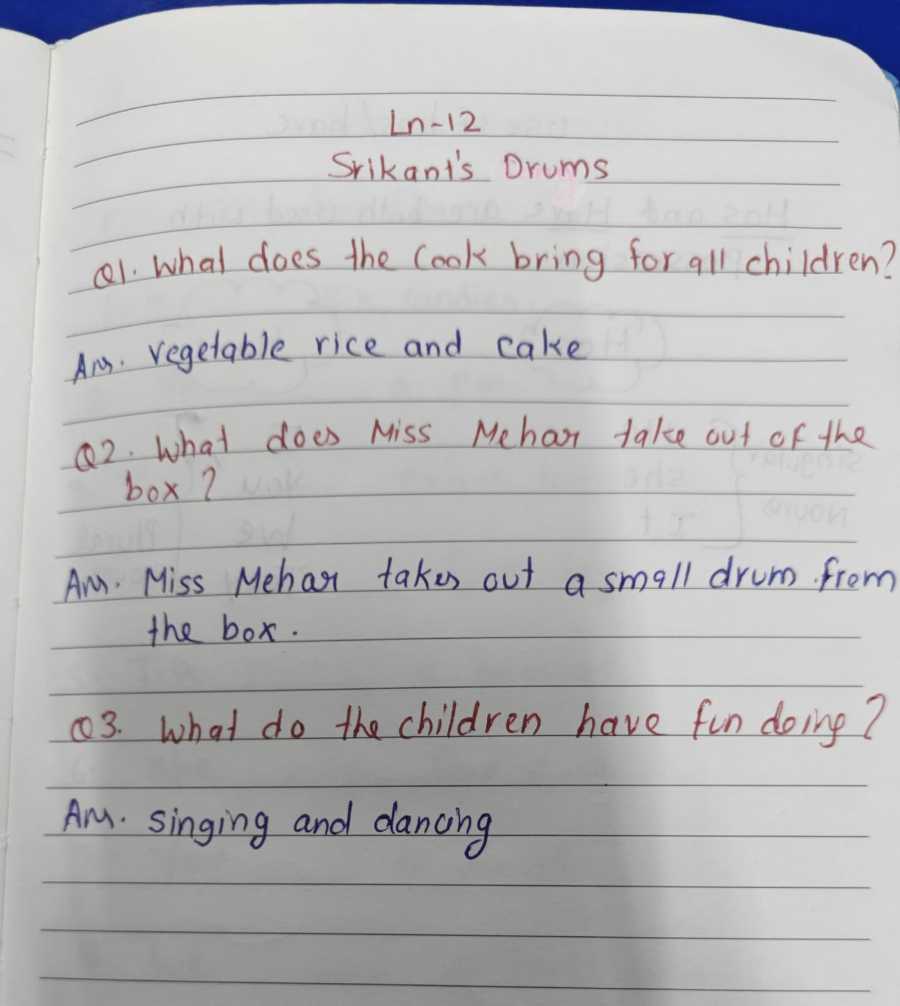 Ln-12
Srikant's Drums
Q1. What does the Cook bring for all children?
Ans. Vegetable rice and cake
Q2. What does Miss Mehar take out of the
box?
Ans. Miss Mehar takes out a small drum from
the box.
Q3. What do the children have fun doing?
Ans. singing and dancing